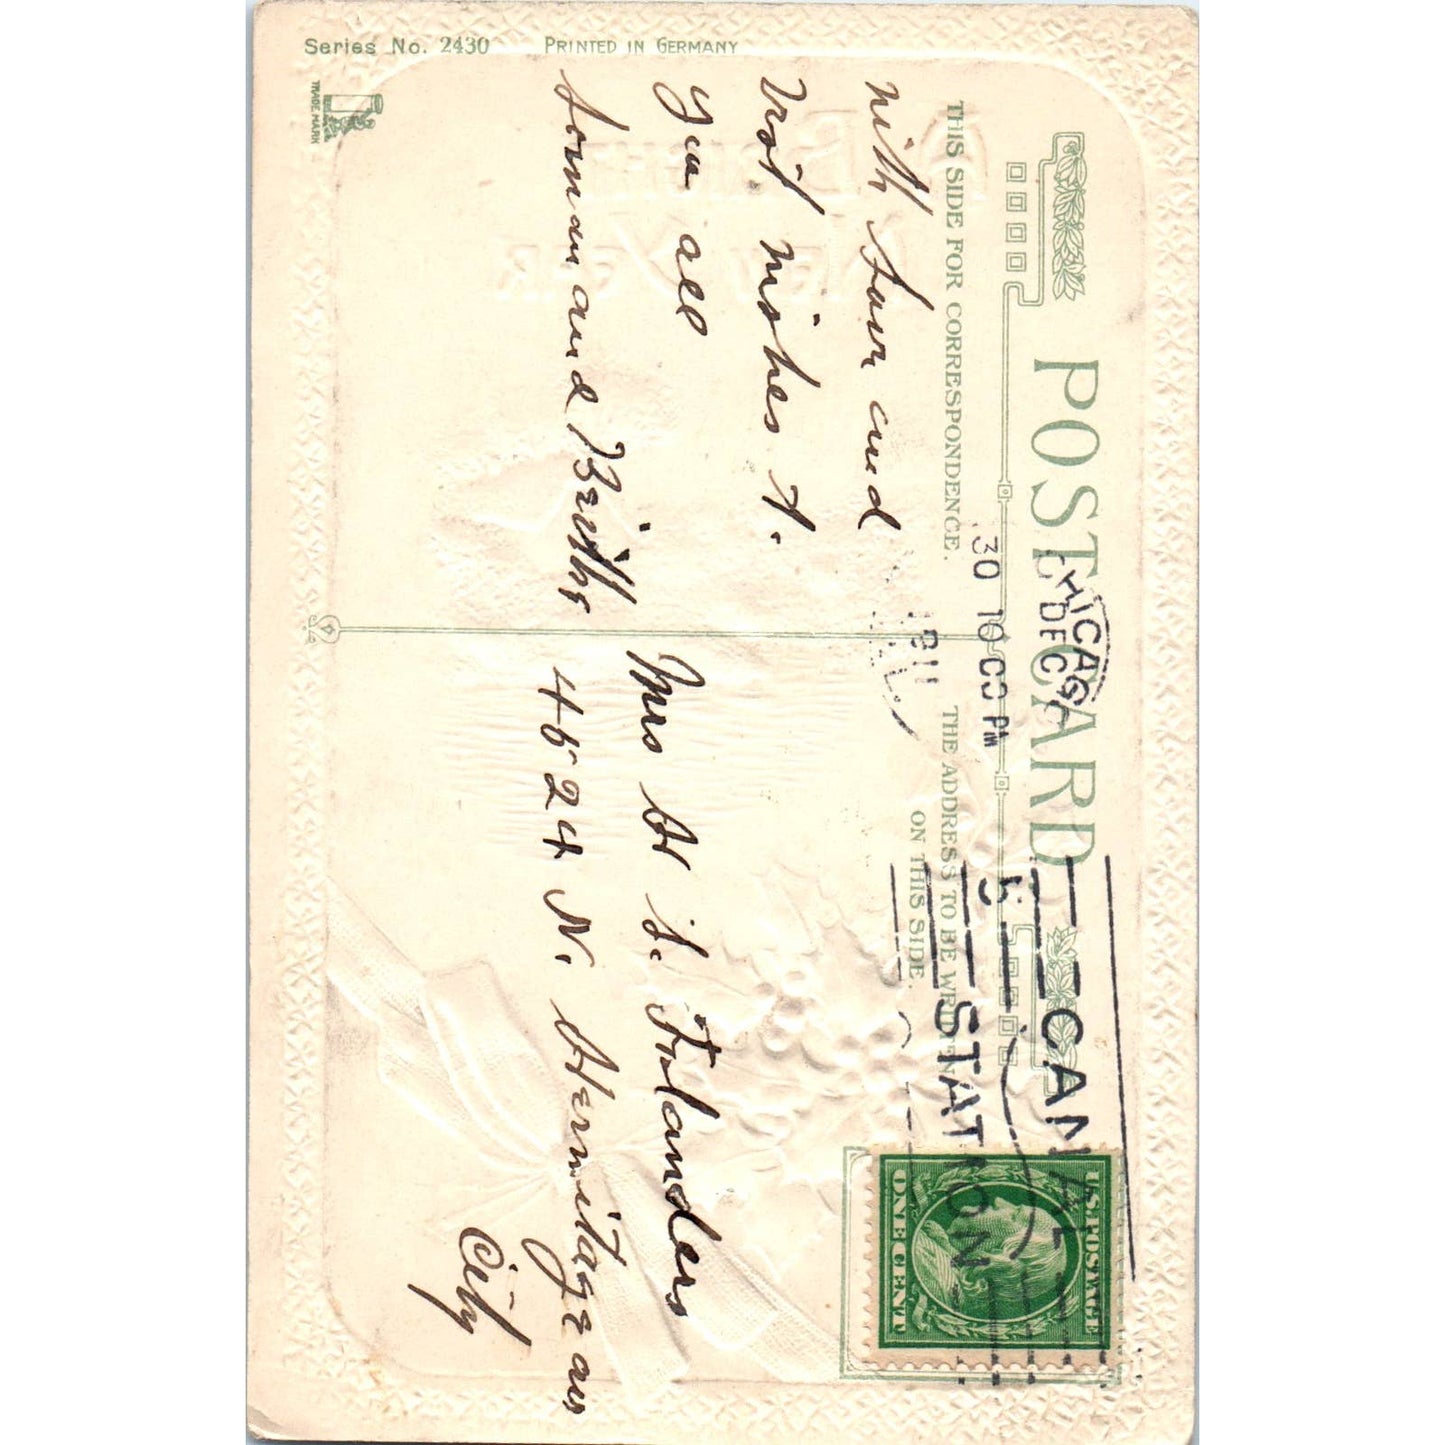 Series No. 2430 PRINTED IN GERMANY
TRADE MARK
POST CARD
THIS SIDE FOR CORRESPONDENCE.
THE ADDRESS TO BE WRITTEN
ON THIS SIDE.
CHICAGO
DEC
30 10 00 PM
1911
ILL.
CANAL
STATION
U.S. POSTAGE
ONE CENT
A
BRIGHT
NEW YEAR
with Love and
Best wishes to.
you all
and
Mrs H L. Folanders
4524 N. Hermitage av
City